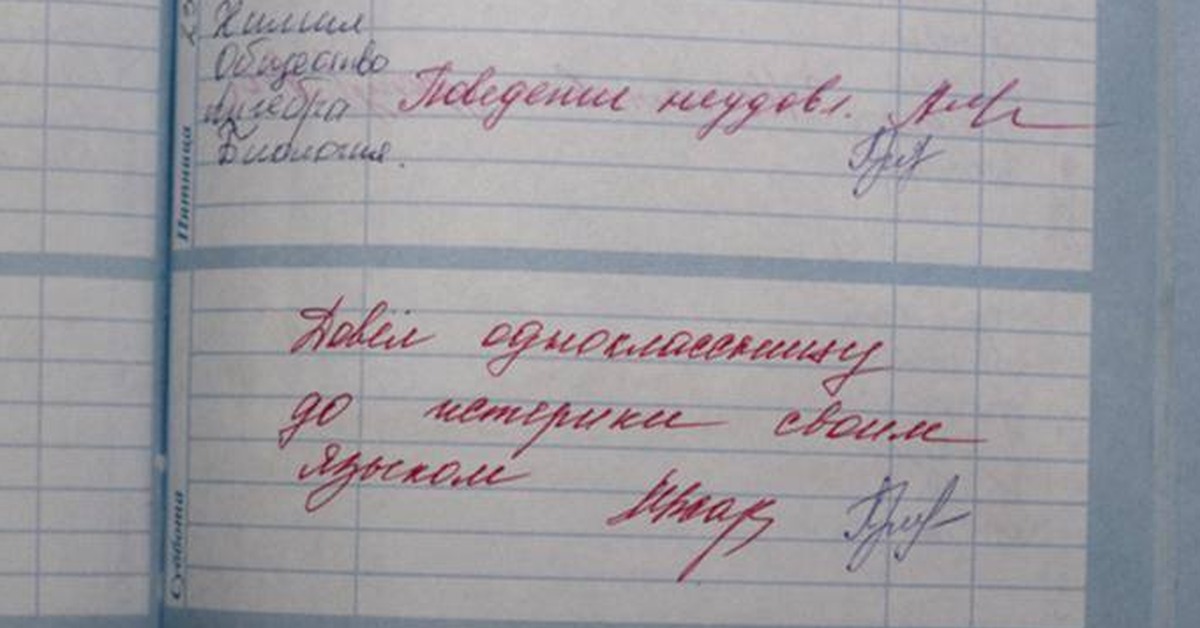 Химия
Общество
Алгебра
Поведение неудовл.
Биология.
Пятница
Довёл одноклассницу
до истерики своим
языком
Суббота